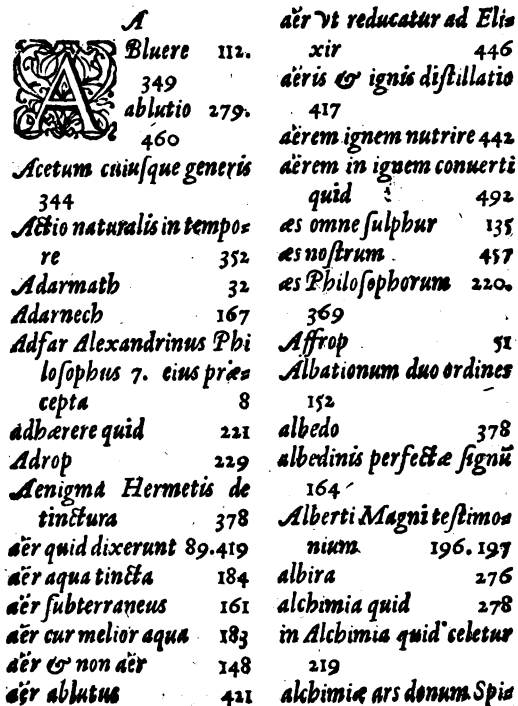 A
ABluere 112.
349
ablutio 279.
460
Acetum cuiusque generis
344
Actio naturalis in tempo=
re 352
Adarmath 32
Adarnech 167
Adfar Alexandrinus Phi
losophus 7. eius præ=
cepta 8
adhærere quid 221
Adrop 229
Aenigma Hermetis de
tinctura 378
aër quid dixerunt 89.419
aër aqua tincta 184
aër subterraneus 161
aër cur melior aqua 183
aër & non aër 148
aër ablutus 421
aër vt reducatur ad Eli=
xir 446
aëris & ignis distillatio
417
aërem ignem nutrire 442
aërem in ignem conuerti
quid 492
æs omne sulphur 135
æs nostrum 457
æs Philosophorum 220.
369
Affrop 51
Albationum duo ordines
152
albedo 378
albedinis perfectæ signū
164
Alberti Magni testimo=
nium 196.197
albira 276
alchimia quid 278
in Alchimia quid celetur
219
alchimiæ ars donum Spi=